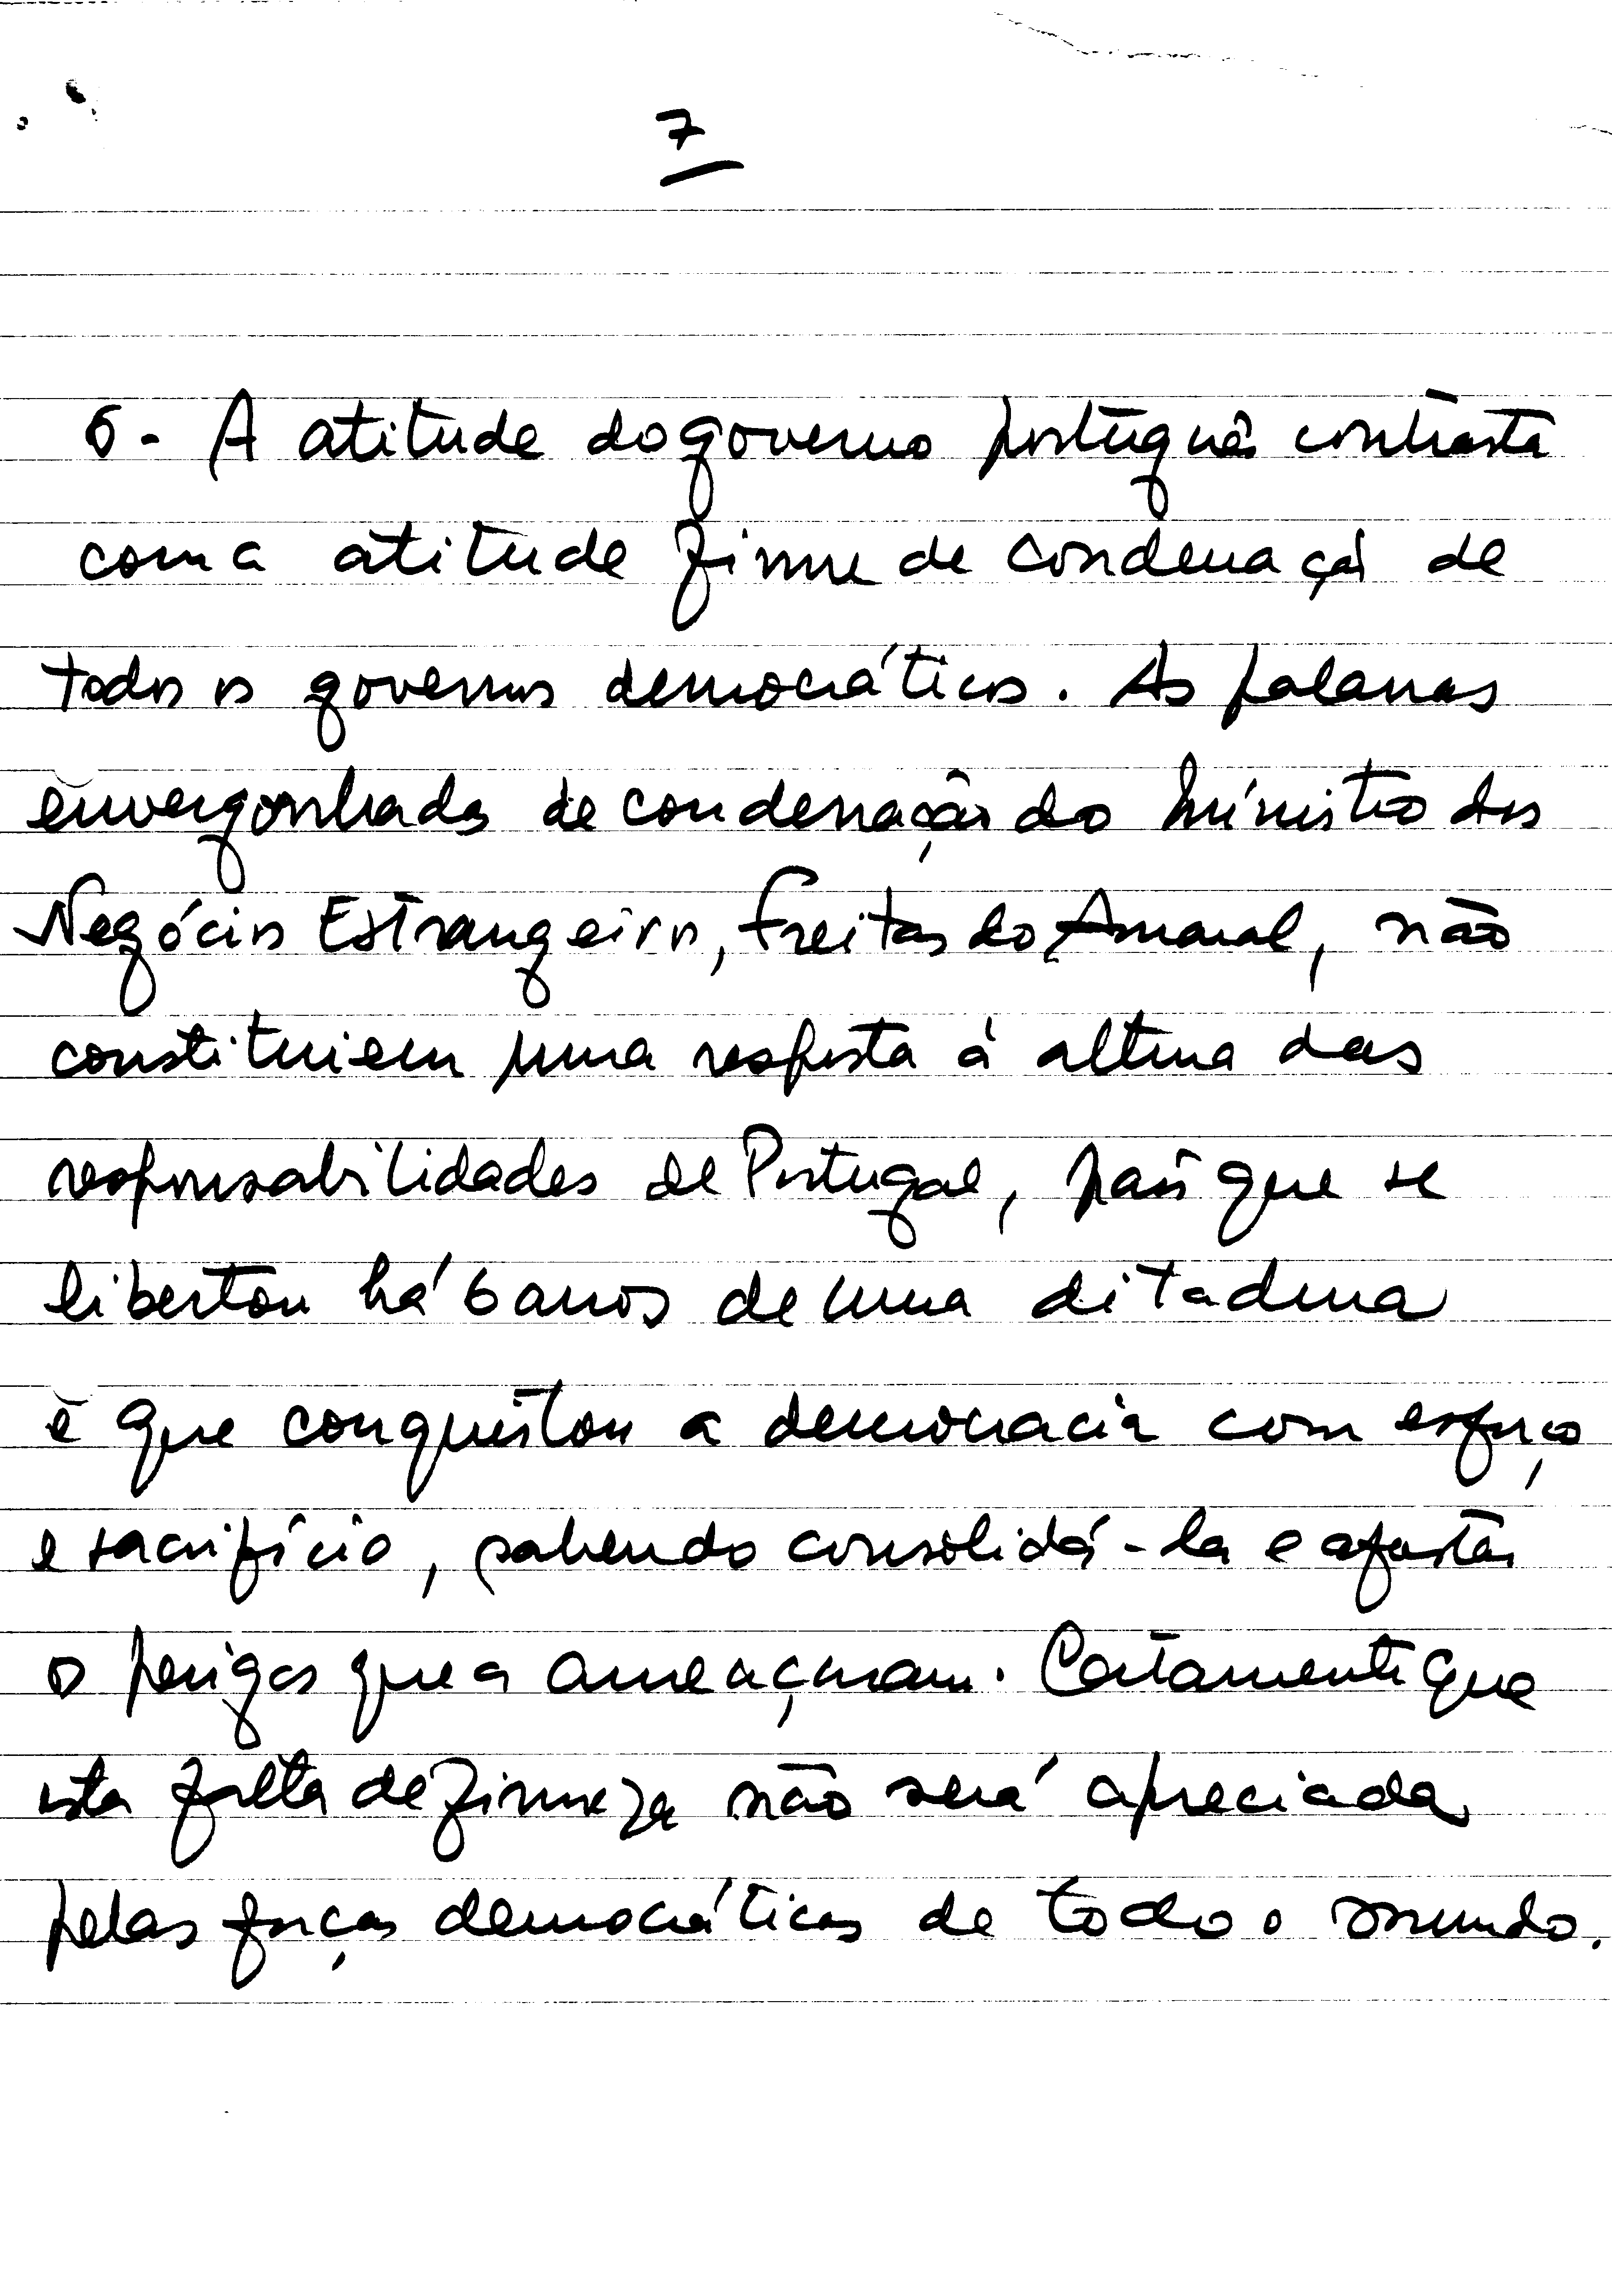 7
6 - A atitude do governo português contrasta
com a atitude firme de condenação de
todos os governos democráticos. As palavras
envergonhadas de condenação do Ministro dos
Negócios Estrangeiros, Freitas do Amaral, não
constituiem uma resposta à altura das
responsabilidades de Portugal, país que se
libertou há 6 anos de uma ditadura
e que conquistou a democracia com esforço
e sacrifício, sabendo consolidá-la e afastar
os perigos que a ameaçaram. Certamente que
esta falta de firmeza não será apreciada
pelas forças democráticas de todo o mundo.